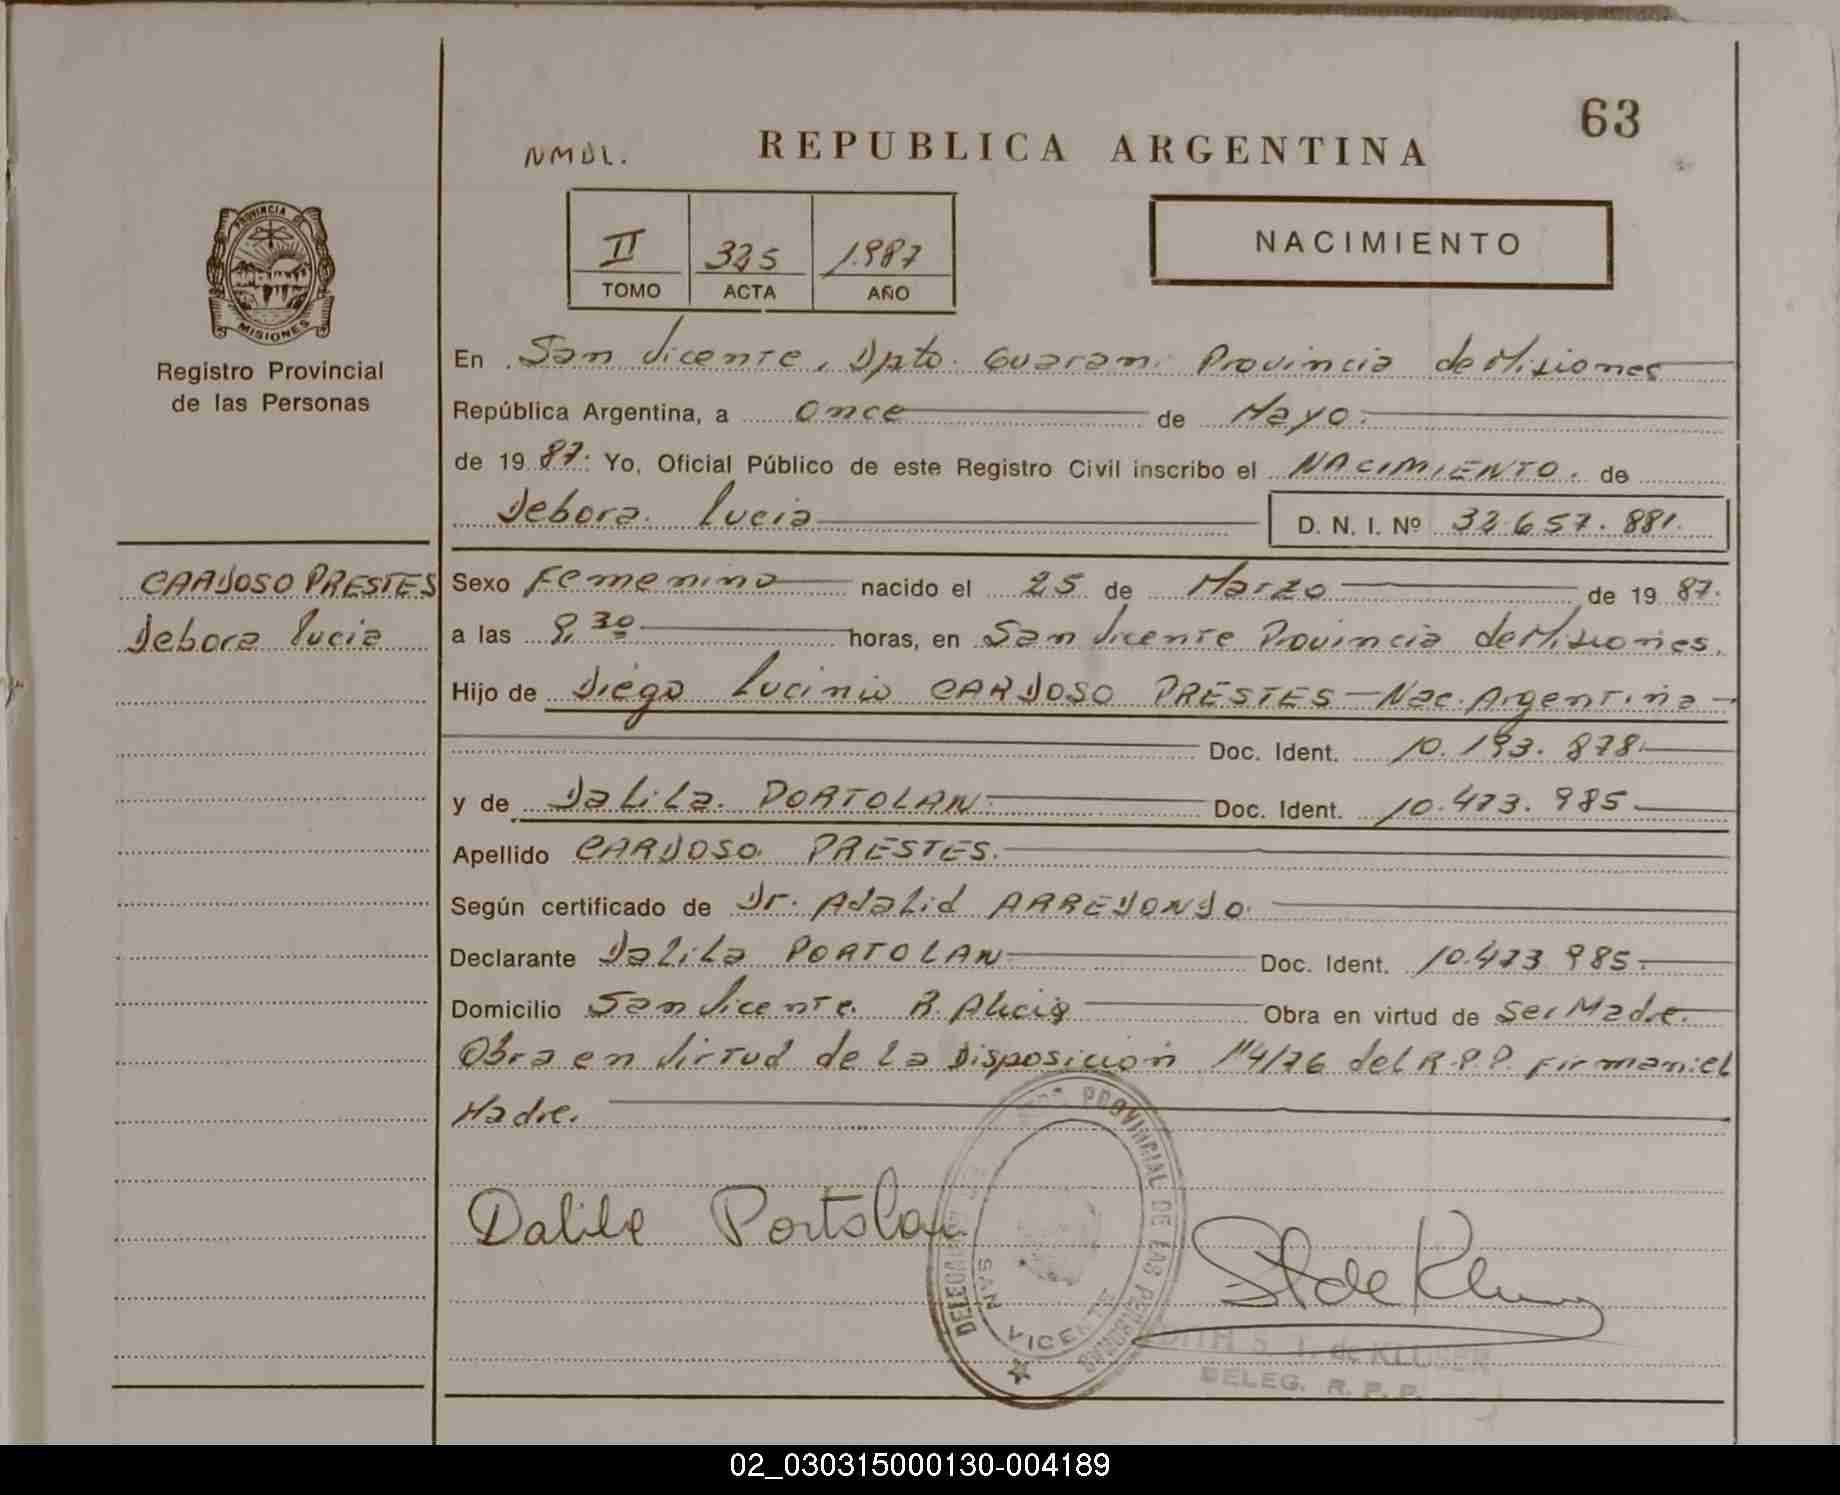 63
NMDL.
REPUBLICA ARGENTINA
II 325 1.987
TOMO ACTA AÑO
NACIMIENTO
PROVINCIA DE
MISIONES
Registro Provincial
de las Personas
En San Vicente, Dpto. Guarani Provincia de Misiones
República Argentina, a once de Mayo.
de 19 87. Yo, Oficial Público de este Registro Civil inscribo el NACIMIENTO. de
Debora. Lucia D. N. I. Nº 32.657.881.
CARDOSO PRESTES
Debora Lucia
Sexo Femenino nacido el 25 de Marzo de 19 87.
a las 8,30 horas, en San Vicente Provincia de Misiones.
Hijo de Diego Lucinio CARDOSO PRESTES - Nac. Argentina -
Doc. Ident. 10.193.878.
y de Dalila. PORTOLAN Doc. Ident. 10.473.985
Apellido CARDOSO PRESTES.
Según certificado de Dr. Adalid ARREDONDO.
Declarante Dalila PORTOLAN Doc. Ident. 10.473.985.
Domicilio San Vicente. B. Alicia Obra en virtud de Ser Madre.
Obra en virtud de la Disposicion 114/76 del R.P.P. Firman: el
Madre.
Dalila Portolan
DELEGACION PROVINCIAL DE LAS PERSONAS
SAN VICENTE
S. I. de KLUSER
DELEG. R. P. P.
02_030315000130-004189